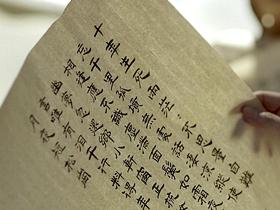 十年生死兩茫:不思量自難
忘千里孤墳無處話淒涼縱使
相逢應不識塵滿面鬢如霜夜
幽夢忽還鄉小軒窗正梳
言唯有淚千行料得年
月夜短松崗